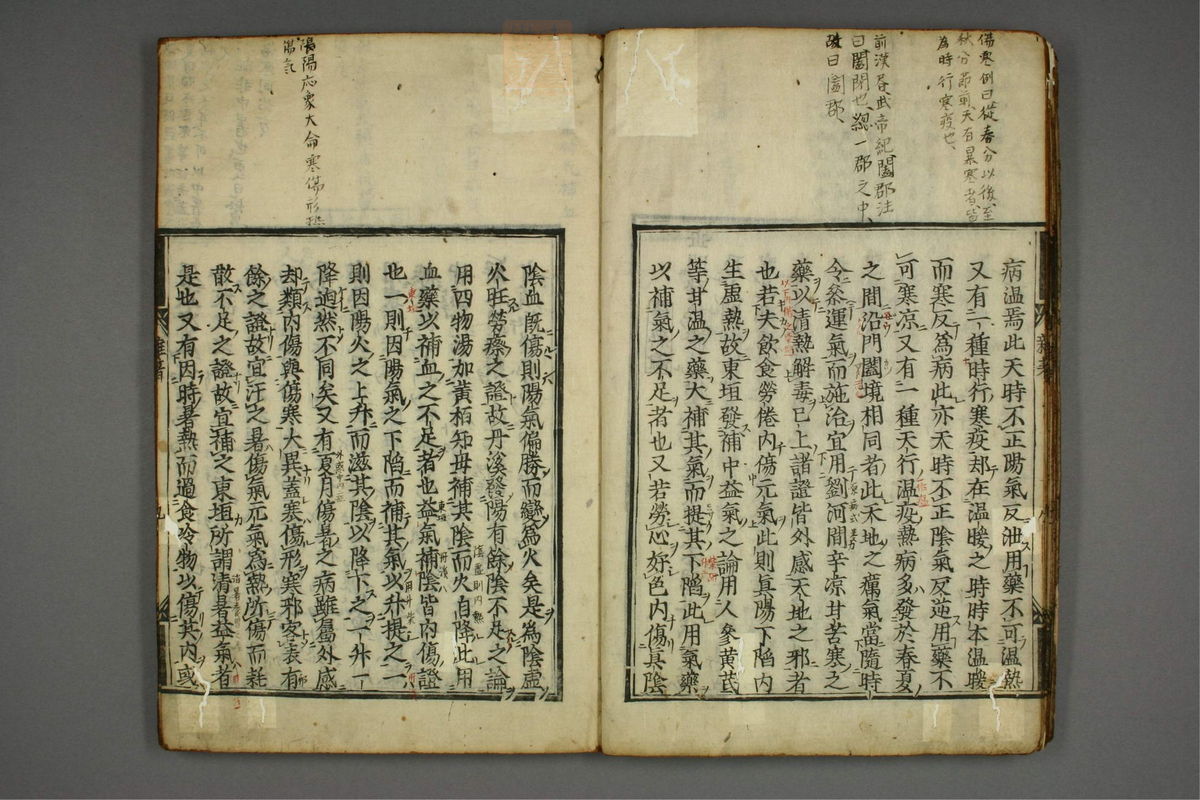 傷寒例曰從春分以後至
秋分節前天有暴寒者皆
為時行寒疫也
前漢書武帝紀闔郡注
曰闔閉也總一郡之中
故曰闔郡
病温焉此天時不正陽氣反泄用藥不可温熱
又有一種時行寒疫却在温暖之時時本温暖
而寒反為病此亦天時不正陰氣反逆用藥不
可寒凉又有一種天行温疫熱病多發於春夏
之間沿門闔境相同者此天地之癘氣當隨時
令參運氣而施治宜用劉河間辛凉甘苦寒之
藥以清熱解毒已上諸證皆外感天地之邪者
也若夫飲食勞倦内傷元氣此則真陽下陷内
生虛熱故東垣發補中益氣之論用人參黄芪
等甘温之藥大補其氣而提其下陷此用氣藥
以補氣之不足者也又若勞心好色内傷真陰
陰血既傷則陽氣偏勝而變為火矣是為陰虛
火旺勞瘵之證故丹溪發陽有餘陰不足之論
用四物湯加黄栢知母補其陰而火自降此用
血藥以補血之不足者也益氣補陰皆内傷證
也一則因陽氣之下陷而補其氣以升提之一
則因陽火之上升而滋其陰以降下之一升一
降迥然不同矣又有夏月傷暑之病雖屬外感
却類内傷與傷寒大異蓋寒傷形寒邪客表有
餘之證故宜汗之暑傷氣元氣為熱所傷而耗
散不足之證故宜補之東垣所謂清暑益氣者
是也又有因時暑熱而過食冷物以傷其内或
陰陽応象大命寒傷形熱
傷氣
雜著
九